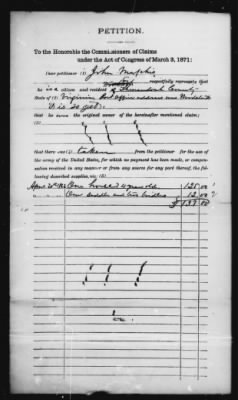 PETITION.
To the Honorable the Commissioners of Claims
under the Act of Congress of March 3, 1871:
Your petitioner (1) John
respectfully represents that
he is a citizen and resident of Shenandoah County
State of (2) Virginia Post office address near Woodstock
that he the original owner of the hereinafter mentioned claim;
that there was (4) taken from the petitioner for the use of
the army of the United States, for which no payment has been made, or compen-
sation received in any manner or from any source for any part thereof, the following
described supplies, viz: (5)
One 4 years old 125.00
One saddle and two bridles 12.00
$137.00